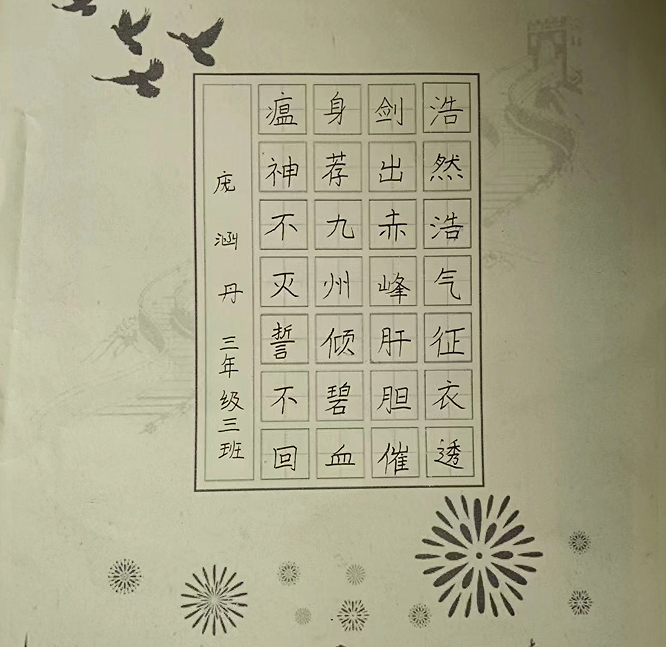 浩然浩气征衣透
剑出赤峰肝胆催
身荐九州倾碧血
瘟神不灭誓不回
庞涵丹 三年级三班